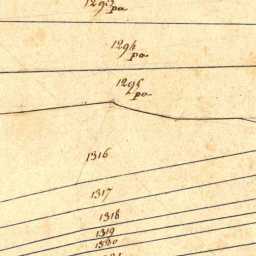 1293
pa
1294
pa
1295
pa
1316
1317
1318
1319
1320